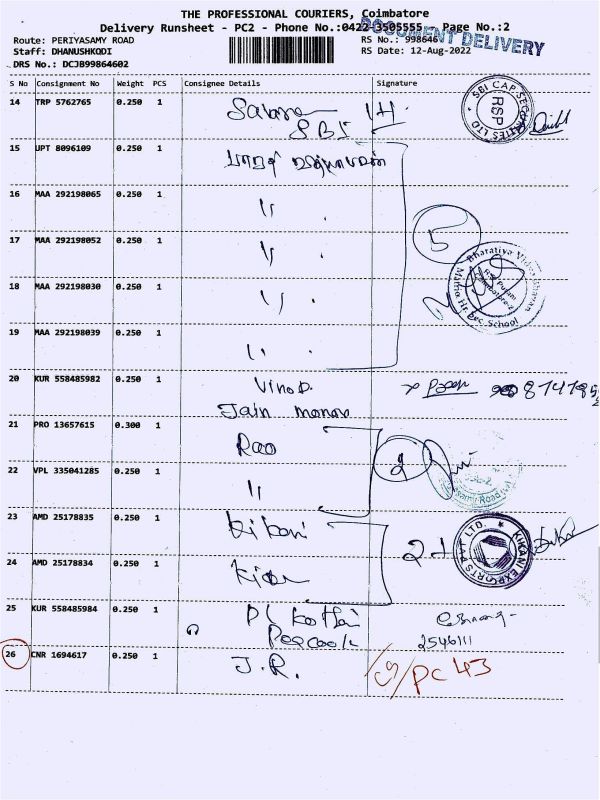 THE PROFESSIONAL COURIERS, Coimbatore
Delivery Runsheet - PC2 - Phone No.:0422-3505555 Page No.:2
DOCUMENT DELIVERY
Route: PERIYASAMY ROAD
RS No.: 998646
Staff: DHANUSHKODI
RS Date: 12-Aug-2022
DRS No.: DCJB99864602
S No Consignment No Weight PCS Consignee Details Signature
14 TRP 5762765 0.250 1
SBI
SBI CAP SECURITIES LTD
RSP
15 UPT 8096109 0.250 1 பாரதி
16 MAA 292198065 0.250 1 "
5
17 MAA 292198052 0.250 1 "
Bharatiya Vidya Bhavan
Matric Hr. Sec. School
R.S. Puram
Coimbatore-2
18 MAA 292198030 0.250 1 "
19 MAA 292198039 0.250 1 "
20 KUR 558485982 0.250 1 Vino D.
Jain
21 PRO 13657615 0.300 1 Rao
2
22 VPL 335041285 0.250 1 "
23 AMD 25178835 0.250 1 Kikani
KIKANI EXPORTS PVT LTD.
24 AMD 25178834 0.250 1
25 KUR 558485984 0.250 1 Pl Kothari
Peacock 2546111
26 CNR 1694617 0.250 1 J.R. PC 43